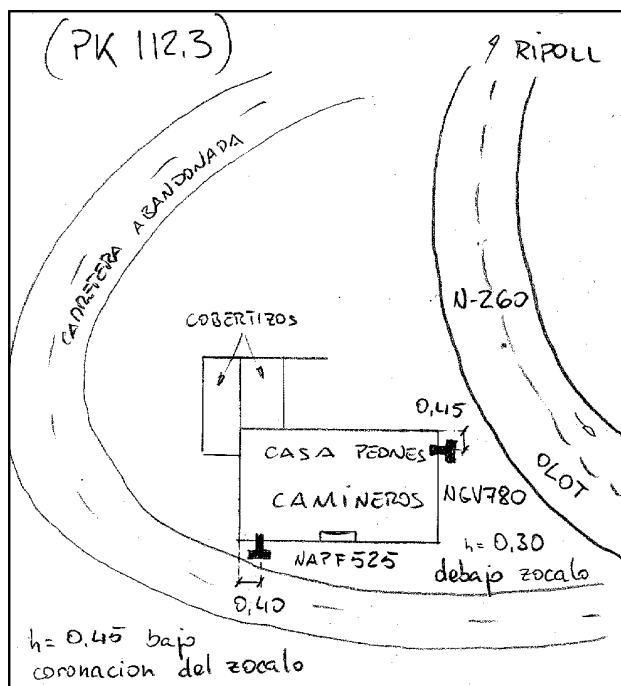 (PK 112.3)
RIPOLL
CARRETERA ABANDONADA
N-260
COBERTIZOS
0,45
CASA PEONES
CAMINEROS
NGV780
OLOT
NAPF525
h= 0,30
debajo zocalo
0,40
h= 0,45 bajo
coronacion del zocalo